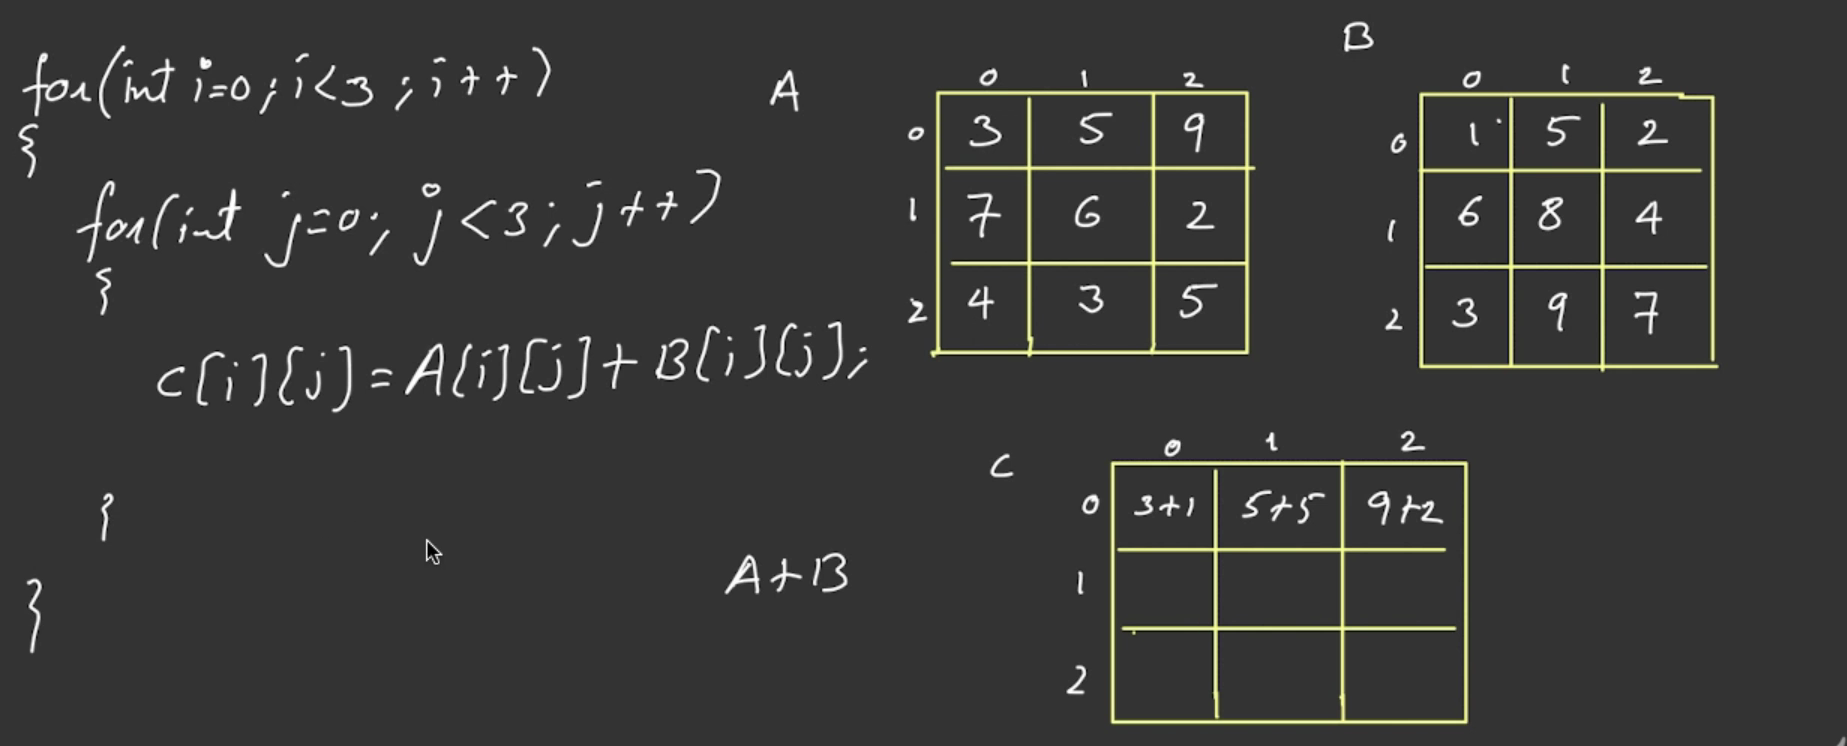 for(int i=0; i<3; i++)
{
for(int j=0; j<3; j++)
{
C[i][j]=A[i][j]+B[i][j];
}
}
A+B
A
0 1 2
0 3 5 9
1 7 6 2
2 4 3 5
B
0 1 2
0 1 5 2
1 6 8 4
2 3 9 7
C
0 1 2
0 3+1 5+5 9+2
1
2